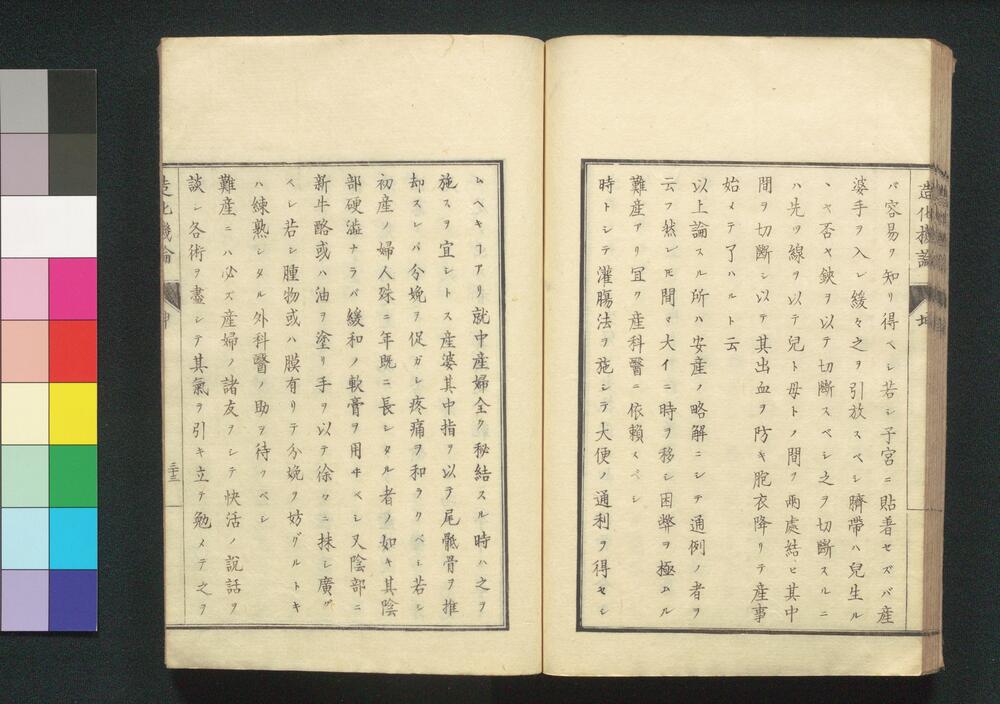 造化機論 坤
バ容易ヲ知リ得ベシ若シ子宮ニ貼著セズバ産
婆手ヲ入レ緩々之ヲ引放スベシ臍帶ハ兒生ル
ヽヤ否ヤ鋏ヲ以テ切斷スベシ之ヲ切斷スルニ
ハ先ツ線ヲ以テ兒ト母トノ間ヲ兩處結ヒ其中
間ヲ切斷シ以テ其出血ヲ防キ胞衣降リテ産事
始メテ了ハルト云
以上論スル所ハ安産ノ略解ニシテ通例ノ者ヲ
云フ然レ𪜈間々大イニ時ヲ移シ困弊ヲ極ムル
難産アリ冝ク産科醫ニ依賴スベシ
時トシテ灌膓法ヲ施シテ大便ノ通利ヲ得セシ
ムヘキヿアリ就中産婦全ク秘結スル時ハ之ヲ
施スヲ宜シトス産婆其中指ヲ以テ尾骶骨ヲ推
却スレバ分娩ヲ促ガシ疼痛ヲ和ラクベシ若シ
初産ノ婦人殊ニ年既ニ長シタル者ノ如キ其陰
部硬澁ナラバ緩和ノ軟膏ヲ用ヰベシ又陰部ニ
新牛酪或ハ油ヲ塗リ手ヲ以テ徐々ニ抹シ廣グ
ベシ若シ腫物或ハ膜有リテ分娩ヲ妨グルトキ
ハ練熟シタル外科醫ノ助ヲ待ツベシ
難産ニハ必ズ産婦ノ諸友ヲシテ快活ノ說話ヲ
談シ各術ヲ盡シテ其氣ヲ引キ立テ勉メテ之ヲ
造化機論 坤 三十三